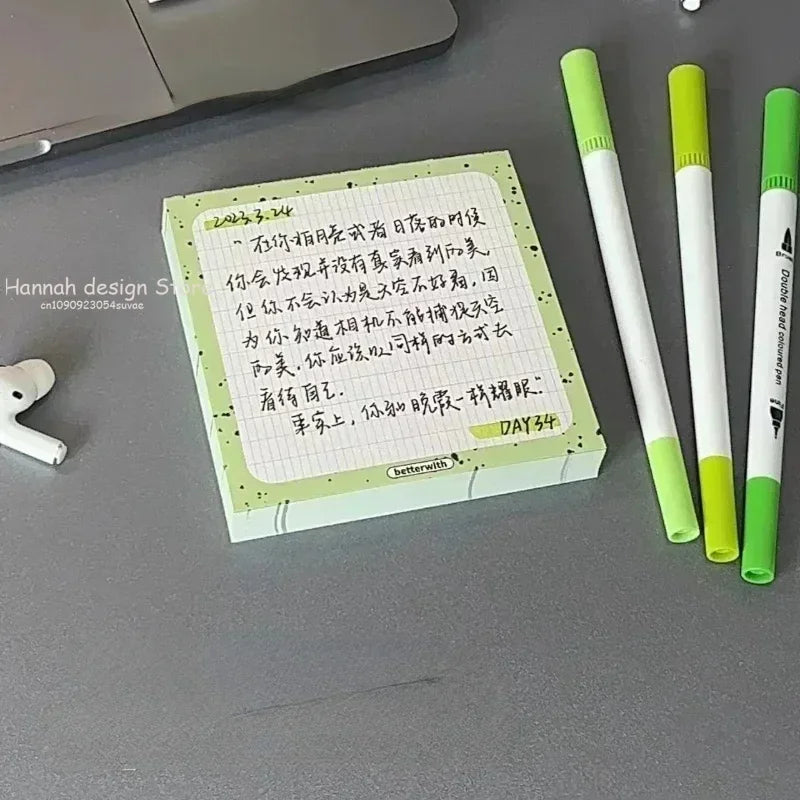 2023.3.24
"在你相册或看日落的时候
你会发现并没有真实看到的美,
但你不会认为是天空不好看,因
为你知道相机不能捕捉天空
的美,你应该以同样的方式去
看待自己.
事实上,你和晚霞一样耀眼."
DAY34
betterwith
Hannah design Store
cn1090923054suvae
Double head coloured pen